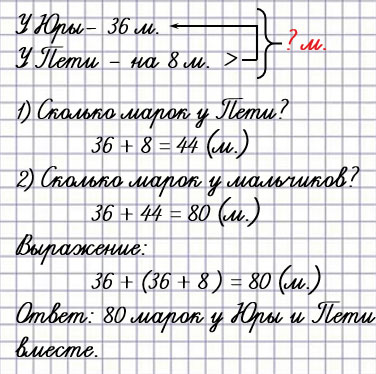 У Юры – 36 м.
У Пети – на 8 м. >
? м.
1) Сколько марок у Пети?
36 + 8 = 44 (м.)
2) Сколько марок у мальчиков?
36 + 44 = 80 (м.)
Выражение:
36 + (36 + 8) = 80 (м.)
Ответ: 80 марок у Юры и Пети
вместе.